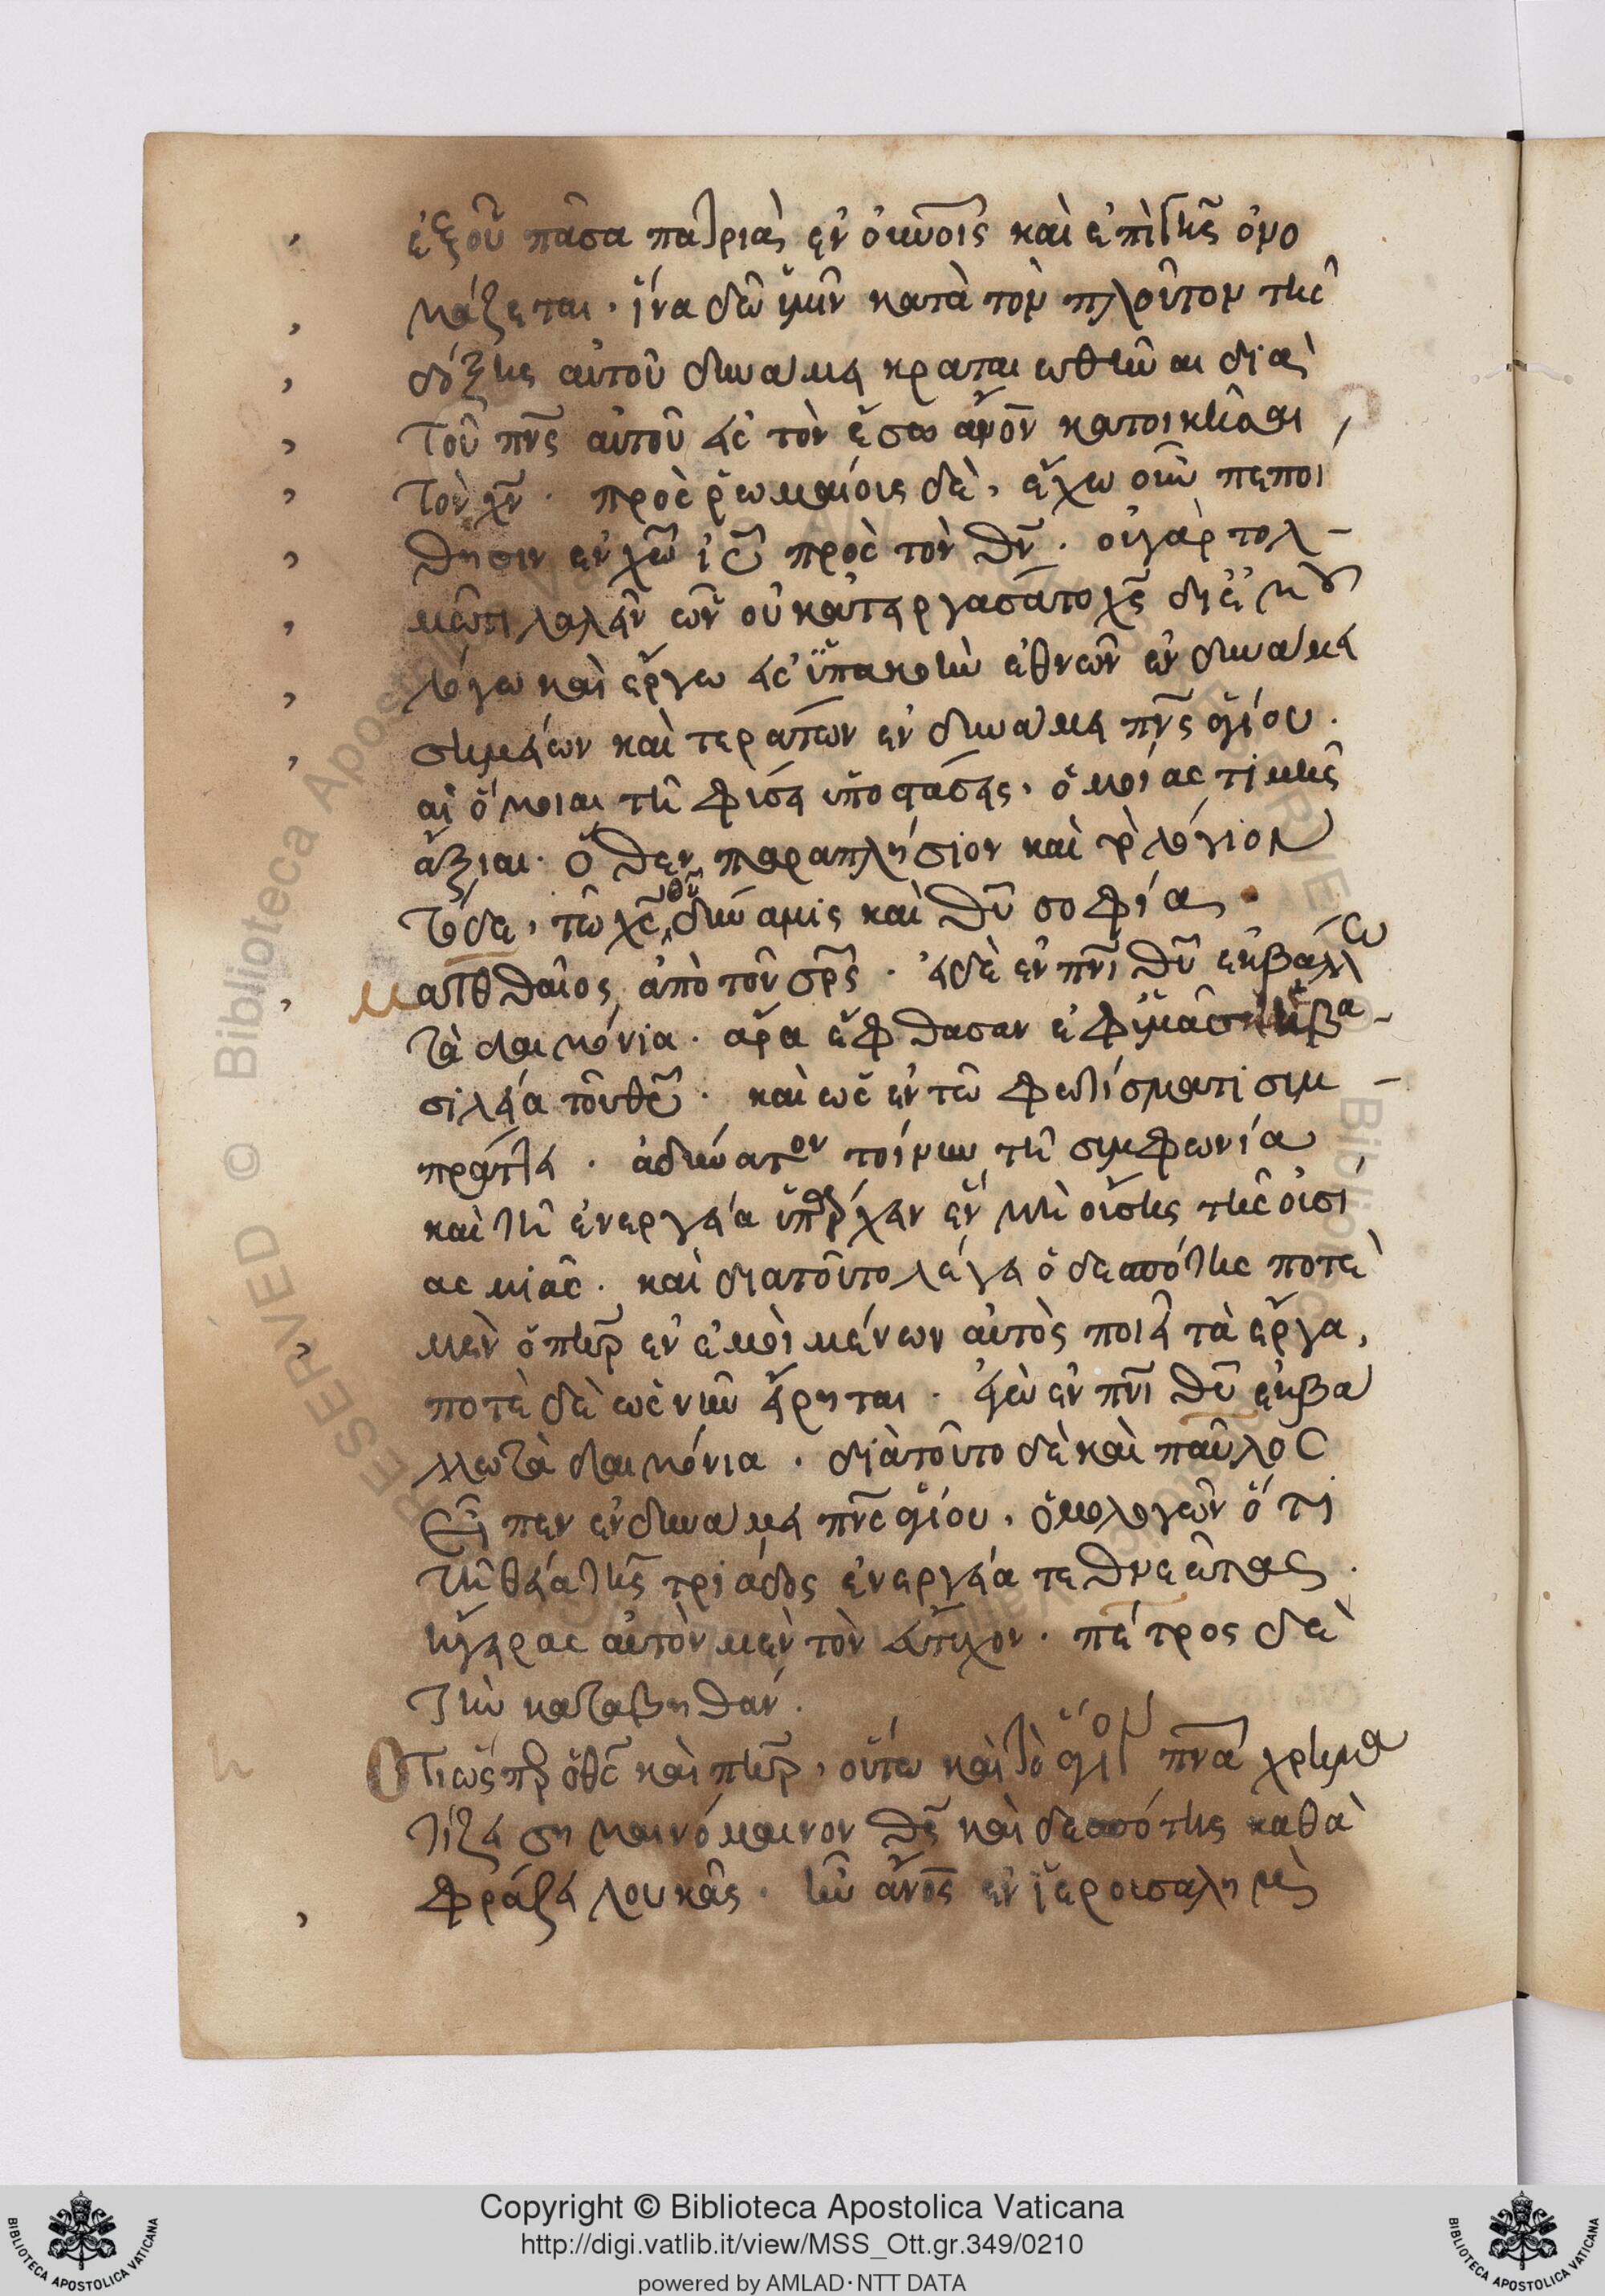 ἐξ οὗ πᾶσα πατριὰ ἐν οὐνοῖς καὶ ἐπὶ γῆς ὀνο
μάζεται. ἵνα δῶ ὑμῖν κατὰ τὸν πλοῦτον τῆς
δόξης αὐτοῦ δυνάμει κραταιωθῆναι διὰ
τοῦ πνς αὐτοῦ εἰς τὸν ἔσω ἄνον κατοικῆσαι
τὸν χν. πρὸς ῥωμαίοις δὲ, ἔχω οὖν πεποί
θησιν ἐν χω ιυ πρὸς τὸν θν. οὐ γὰρ τολ-
μῶ τι λαλεῖν ὧν οὐ κατειργάσατο χς δι' ἐμοῦ
λόγω καὶ ἔργω εἰς ὑπακοὴν ἐθνῶν ἐν δυνάμει
σημείων καὶ τεράτων ἐν δυνάμει πνς ἁγίου.
αἱ ὅμοιαι τῆ φύσει ὑποστάσεις, ὁμοίας τιμῆς
ἄξιαι. ὅθεν παραπλήσιον καὶ τὸ λόγιον
τόδε, τῶ χς θυ δύναμις καὶ θυ σοφία.
ματθθαῖος ἀπὸ τοῦ σρς. εἰ δὲ ἐν πνι θυ ἐκβάλλω
τὰ δαιμόνια. ἄρα ἔφθασεν ἐφ' ὑμᾶς ἡ βα-
σιλεία τοῦ θυ. καὶ ὡς ἐν τῶ φωτίσματι συμ-
πράττει. ἀδύνατον τοίνυν τῆ συμφωνία
καὶ τῆ ἐνεργεία ὑπάρχειν ἓν μὴ οὔσης τῆς οὐσί
ας μιᾶς. καὶ διατοῦτο λέγει ὁ δεσπότης ποτὲ
μὲν ὁ πηρ ἐν ἐμοὶ μένων αὐτὸς ποιεῖ τὰ ἔργα,
ποτὲ δὲ ὡς νῦν εἴρηται. ἐγὼ ἐν πνι θυ ἐκβά
λλω τὰ δαιμόνια. διὰ τοῦτο δὲ καὶ παῦλος
εἶπεν ἐν δυνάμει πνς ἁγίου, ὁμολογῶν ὅτι
τῆ θεία τῆς τριάδος ἐνεργεία τεθνεῶτας
ἤγειρας αὐτὸν μὲν τὸν εὔτυχον. πέτρος δὲ
τὴν καταβηθάν.
Ὅτι ὥσπερ ὁ θς καὶ πηρ, οὕτω καὶ τὸ ἅγιον πνα χρημα
τίζει σημαινόμαινον θς καὶ δεσπότης καθὰ
φράζει λουκᾶς. ἦν ἄνος ἐν ἱερουσαλὴμ